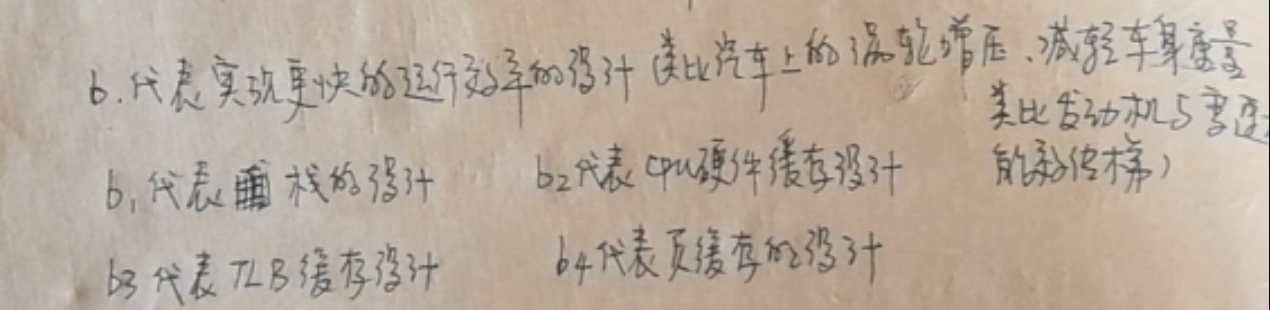 b.代表实现更快的运行效率的设计(类比汽车上的涡轮增压、减轻车身重量
类比发动机与变速
的
b1代表栈的设计
b2代表CPU硬件缓存设计
b3代表TLB缓存设计
b4代表页缓存的设计